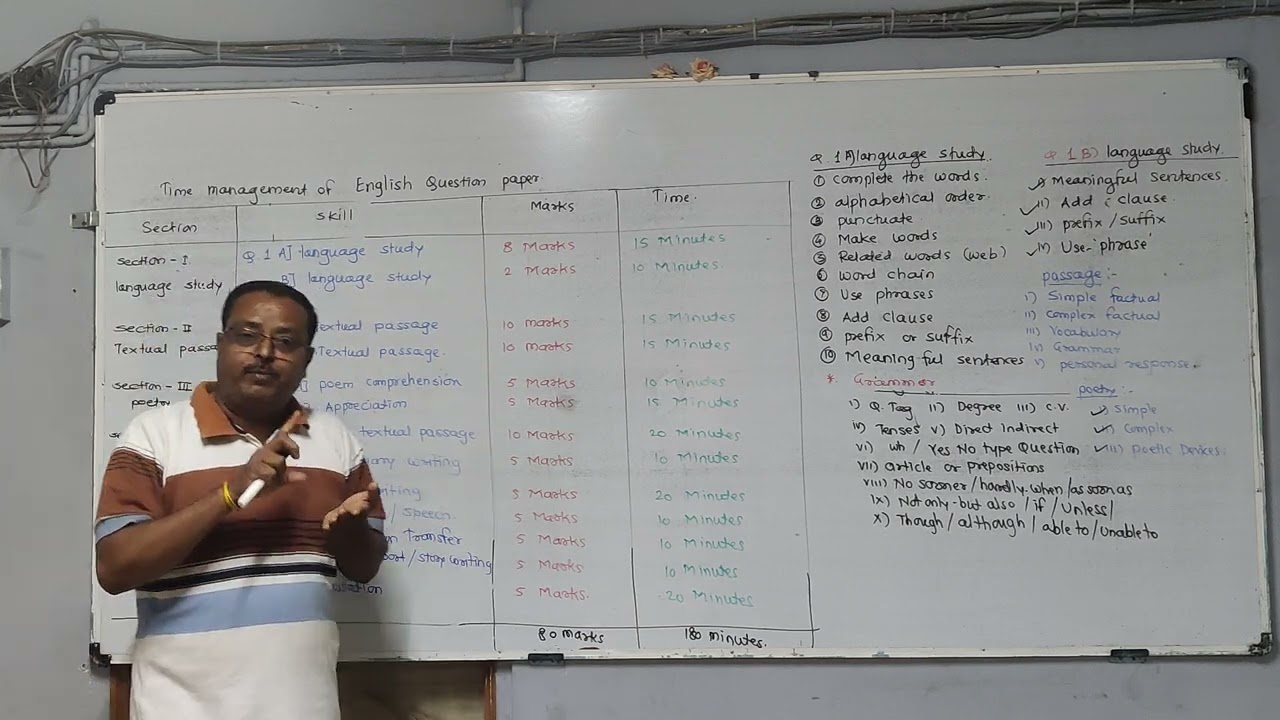 Time management of English Question paper
Section skill Marks Time.
section - I Q 1 A] language study 8 Marks 15 Minutes
language study B] language study 2 Marks 10 Minutes
section - II Textual passage 10 marks 15 Minutes
Textual Textual passage. 10 marks 15 Minutes
section - III poem comprehension 5 Marks 10 Minutes
poetry Appreciation 5 Marks 15 Minutes
textual passage 10 Marks 20 Minutes
writing 5 Marks 10 Minutes
5 Marks 20 Minutes
/ speech 5 Marks 10 Minutes
Transfer 5 Marks 10 Minutes
/ story writing 5 Marks 10 Minutes
5 Marks. 20 Minutes
80 marks 180 minutes.
Q. 1 A) language study.
① complete the words.
② alphabetical order.
③ punctuate
④ Make words
⑤ Related words (web)
⑥ word chain
⑦ Use phrases
⑧ Add clause
⑨ prefix or suffix
⑩ Meaningful sentences
Q 1 B) language study.
Meaningful sentences.
ii) Add clause
iii) prefix / suffix
iv) Use 'phrase'
passage :-
i) Simple factual
ii) complex factual
iii) Vocabulary
iv) Grammar
v) personal response.
* Grammar
i) Q. Tag ii) Degree iii) C.V.
iv) Tenses v) Direct Indirect
vi) wh / Yes No type Question
vii) article or prepositions
viii) No sooner / hardly. when / as soon as
ix) Not only - but also / if / Unless /
x) Though / although / able to / Unable to
poetry :-
Simple
Complex
iii) poetic Devices.